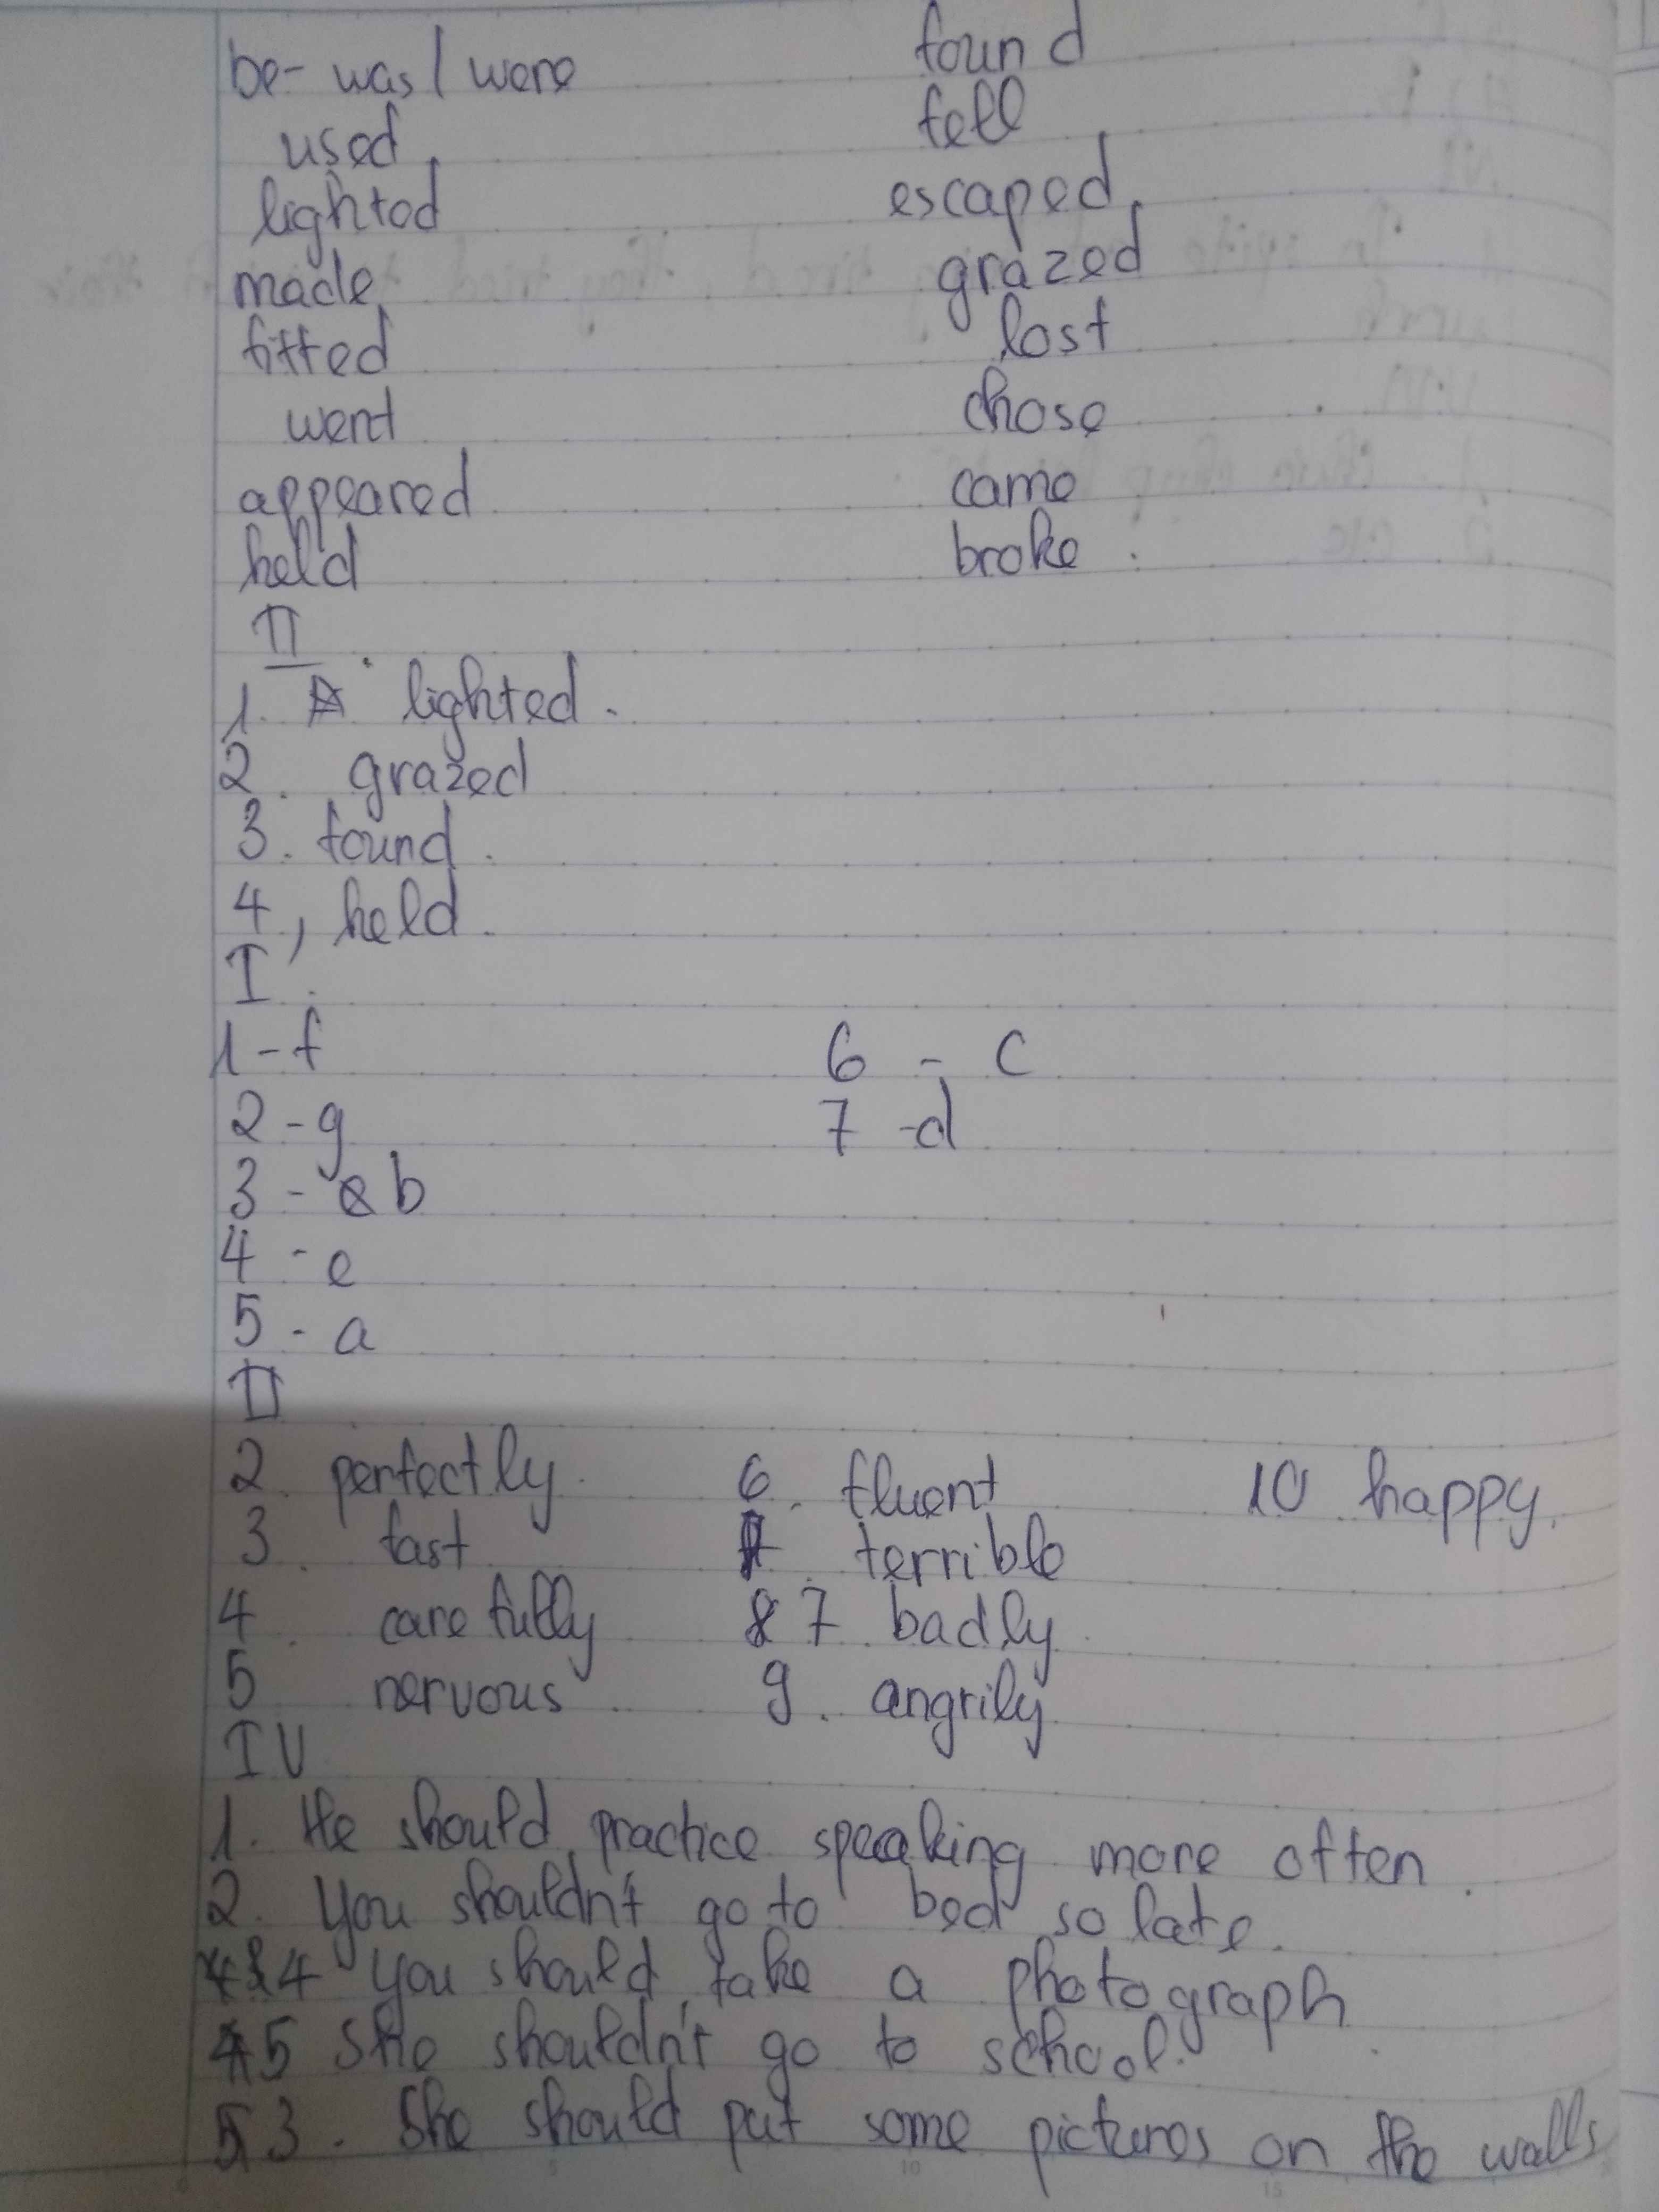 be- was / were found
used fell
lighted escaped
made grazed
fitted lost
went chose
appeared came
held broke
II
1. lighted.
2. grazed
3. found.
4, held.
I.
1-f 6 - c
2-g 7 -d
3- b
4 - e
5 - a
II
2. perfectly. 6. fluent 10 happy.
3. fast . terrible
4. carefully 8 7 badly.
5 nervous 9. angrily
IV
1. He should practice speaking more often.
2. You shouldn't go to bed so late.
4 You should take a photograph
5 She shouldn't go to school.
3. She should put some pictures on the walls